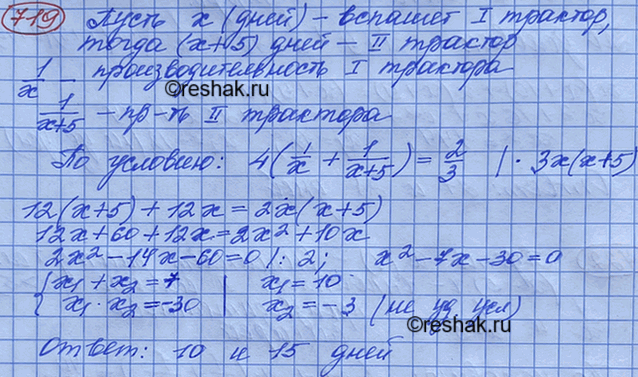 719 Пусть x (дней) - вспашет I трактор,
тогда (x+5) дней - II трактор
1/x - производительность I трактора
1/(x+5) - пр-ть II трактора
По условию: 4(1/x + 1/(x+5)) = 2/3 | · 3x(x+5)
12(x+5) + 12x = 2x(x+5)
12x + 60 + 12x = 2x² + 10x
2x² - 14x - 60 = 0 |: 2; x² - 7x - 30 = 0
{ x₁ + x₂ = 7 | x₁ = 10
x₁ · x₂ = -30 | x₂ = -3 (не уд усл)
Ответ: 10 и 15 дней
©reshak.ru
©reshak.ru
©reshak.ru